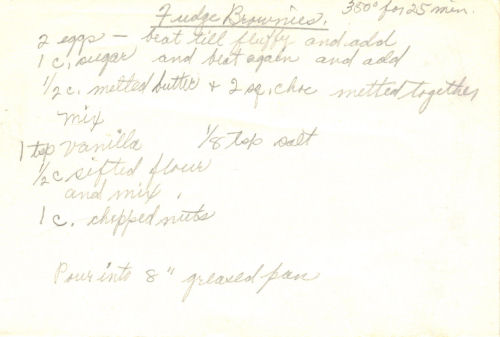 Fudge Brownies. 350° for 25 min.
2 eggs - beat till fluffy and add
1 c. sugar and beat again and add
1/2 c. melted butter + 2 sq. choc melted together
mix
1 tsp vanilla 1/8 tsp salt
1/2 c sifted flour
and mix.
1 c. chopped nuts
Pour into 8" greased pan